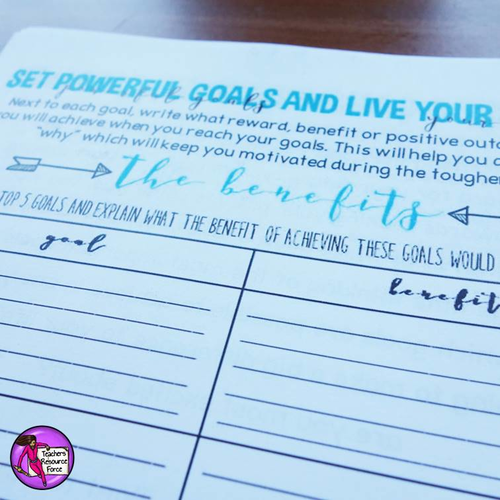 SET POWERFUL GOALS AND LIVE YOUR
Next to each goal, write what reward, benefit or positive outc
you will achieve when you reach your goals. This will help you
"why" which will keep you motivated during the toughe
the benefits
TOP 5 GOALS AND EXPLAIN WHAT THE BENEFIT OF ACHIEVING THESE GOALS WOULD
goal
benefit
Teachers
Resource
Force